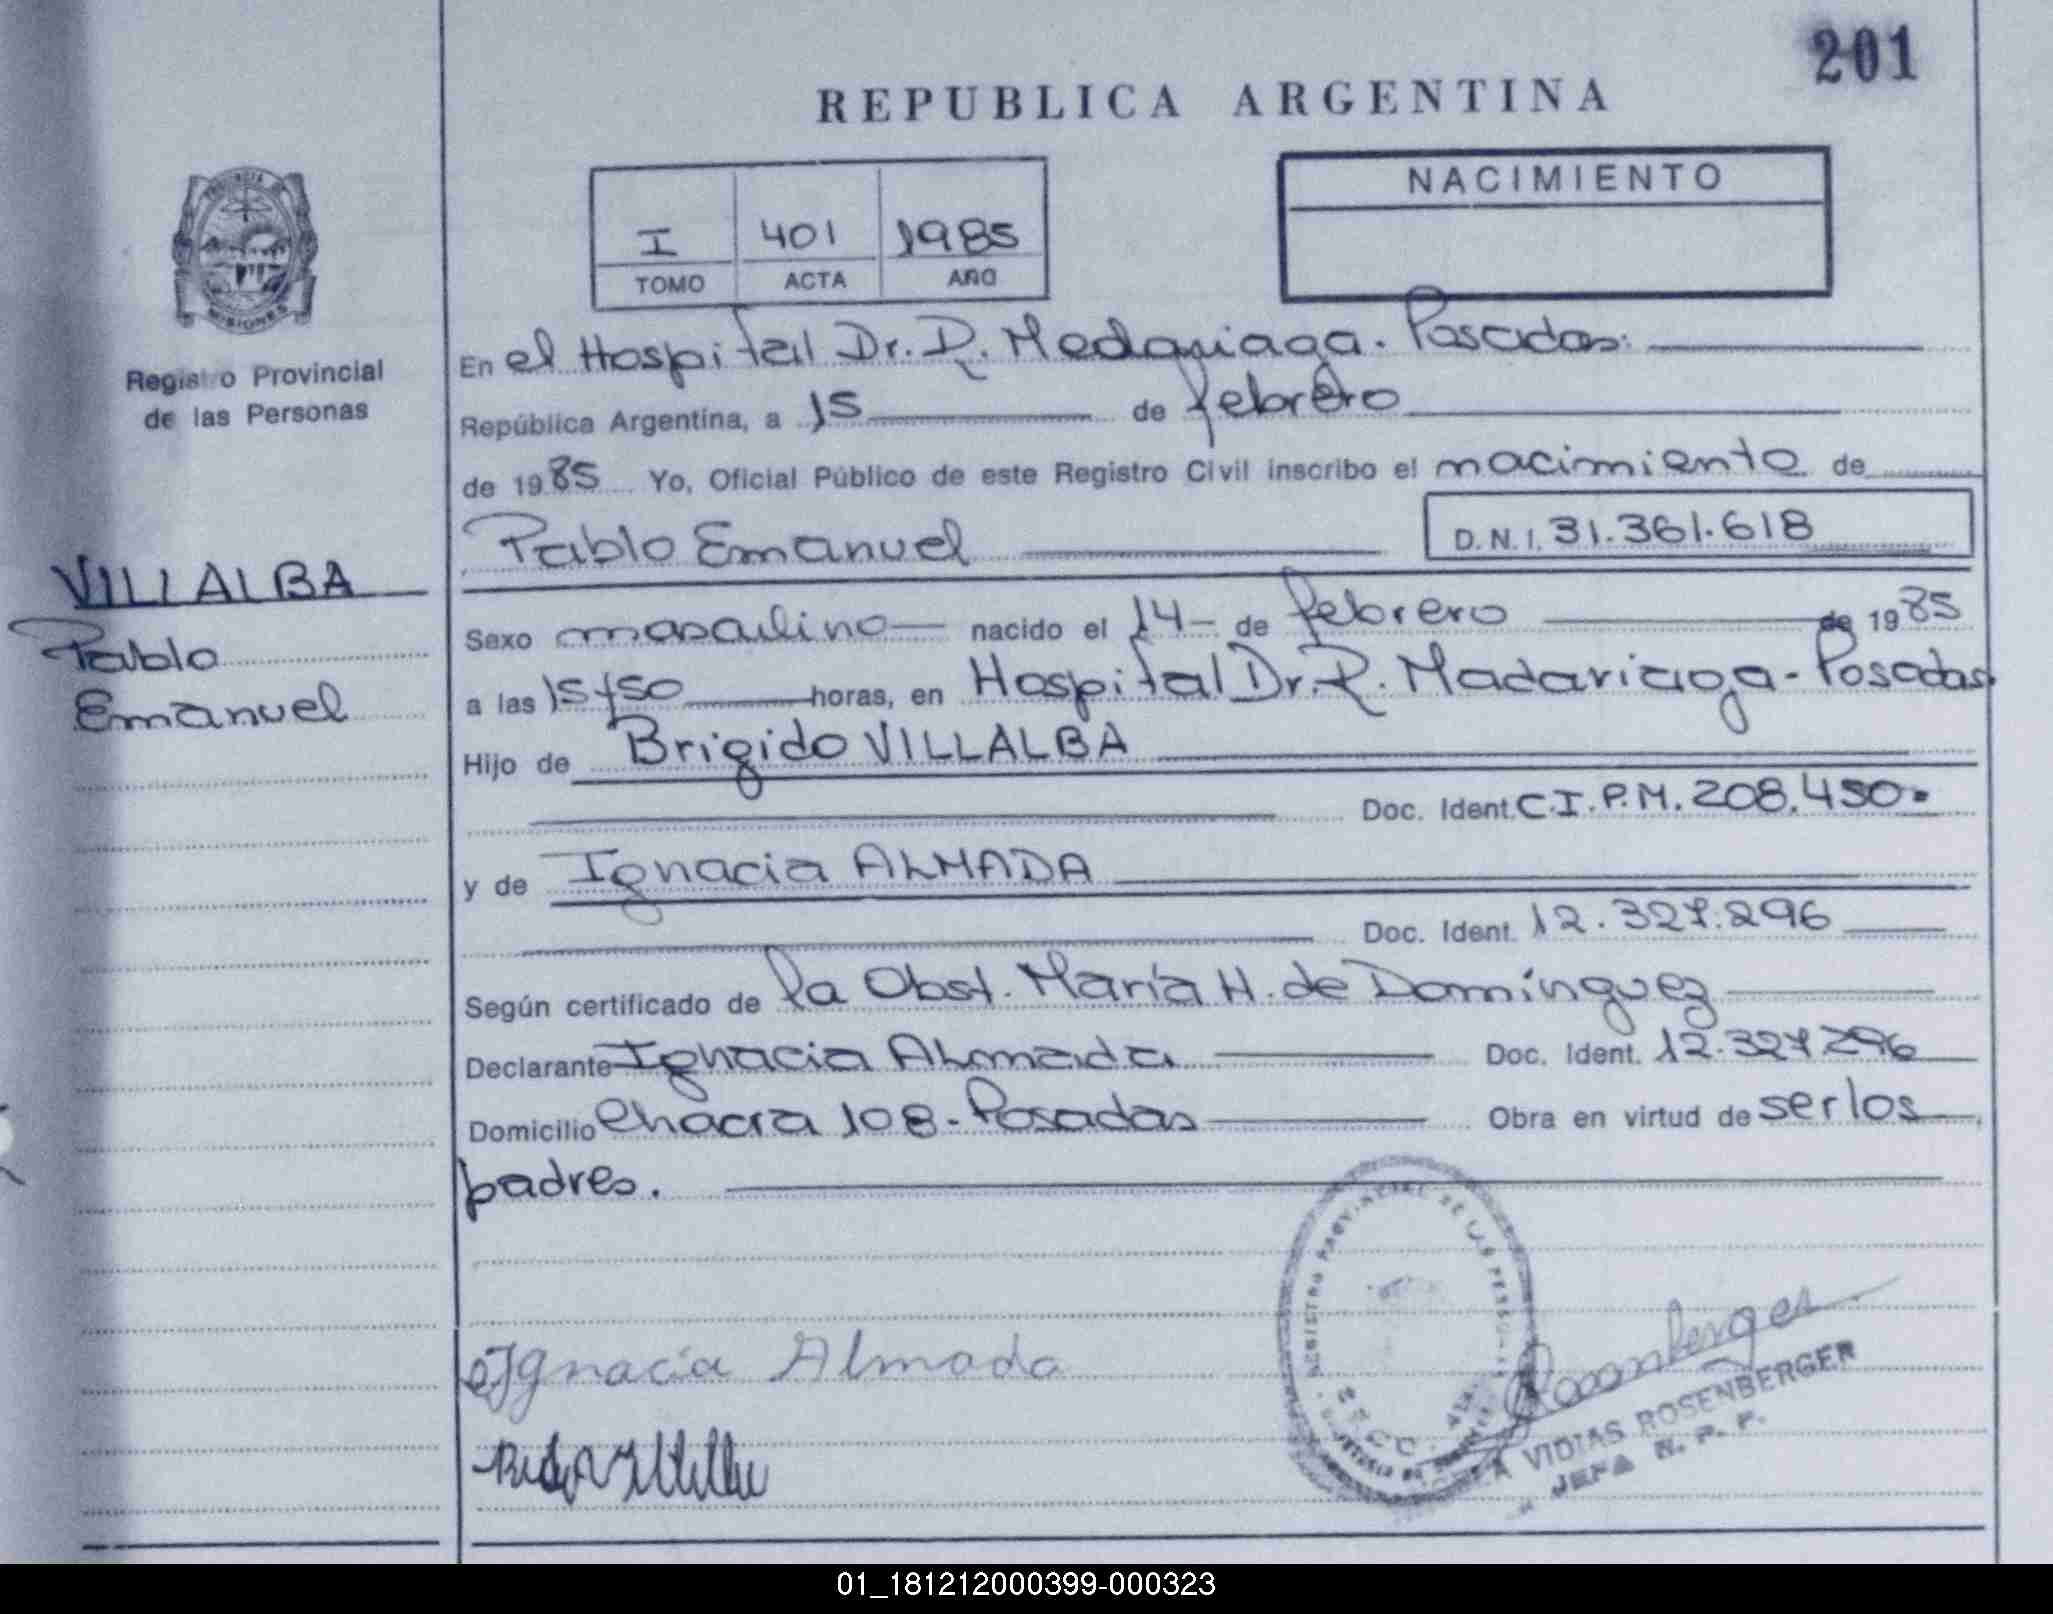 201
REPUBLICA ARGENTINA
I 401 1985
TOMO ACTA AÑO
NACIMIENTO
PROVINCIA DE
MISIONES
Registro Provincial
de las Personas
VILLALBA
Pablo
Emanuel
En el Hospital Dr. R. Madariaga. Posadas.
República Argentina, a 15 de febrero
de 1985 Yo, Oficial Público de este Registro Civil inscribo el nacimiento de
Pablo Emanuel D.N.I. 31.361.618
Sexo masculino nacido el 14 de febrero de 1985
a las 15/50 horas, en Hospital Dr. R. Madariaga - Posadas.
Hijo de Brigido VILLALBA
Doc. Ident. C.I.P.M. 208.450.
y de Ignacia ALMADA
Doc. Ident. 12.327.296
Según certificado de la Obst. María H. de Domínguez
Declarante Ignacia Almada Doc. Ident. 12.327.296
Domicilio Chacra 108 - Posadas Obra en virtud de ser los
padres.
Ignacia Almada
REGISTRO PROVINCIAL DE LAS PERSONAS
Rosenberger
VIDIAS ROSENBERGER
JEFA R. P. P.
01_181212000399-000323